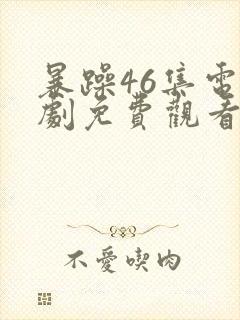 暴躁46集電
劇免費觀看
不愛喫肉